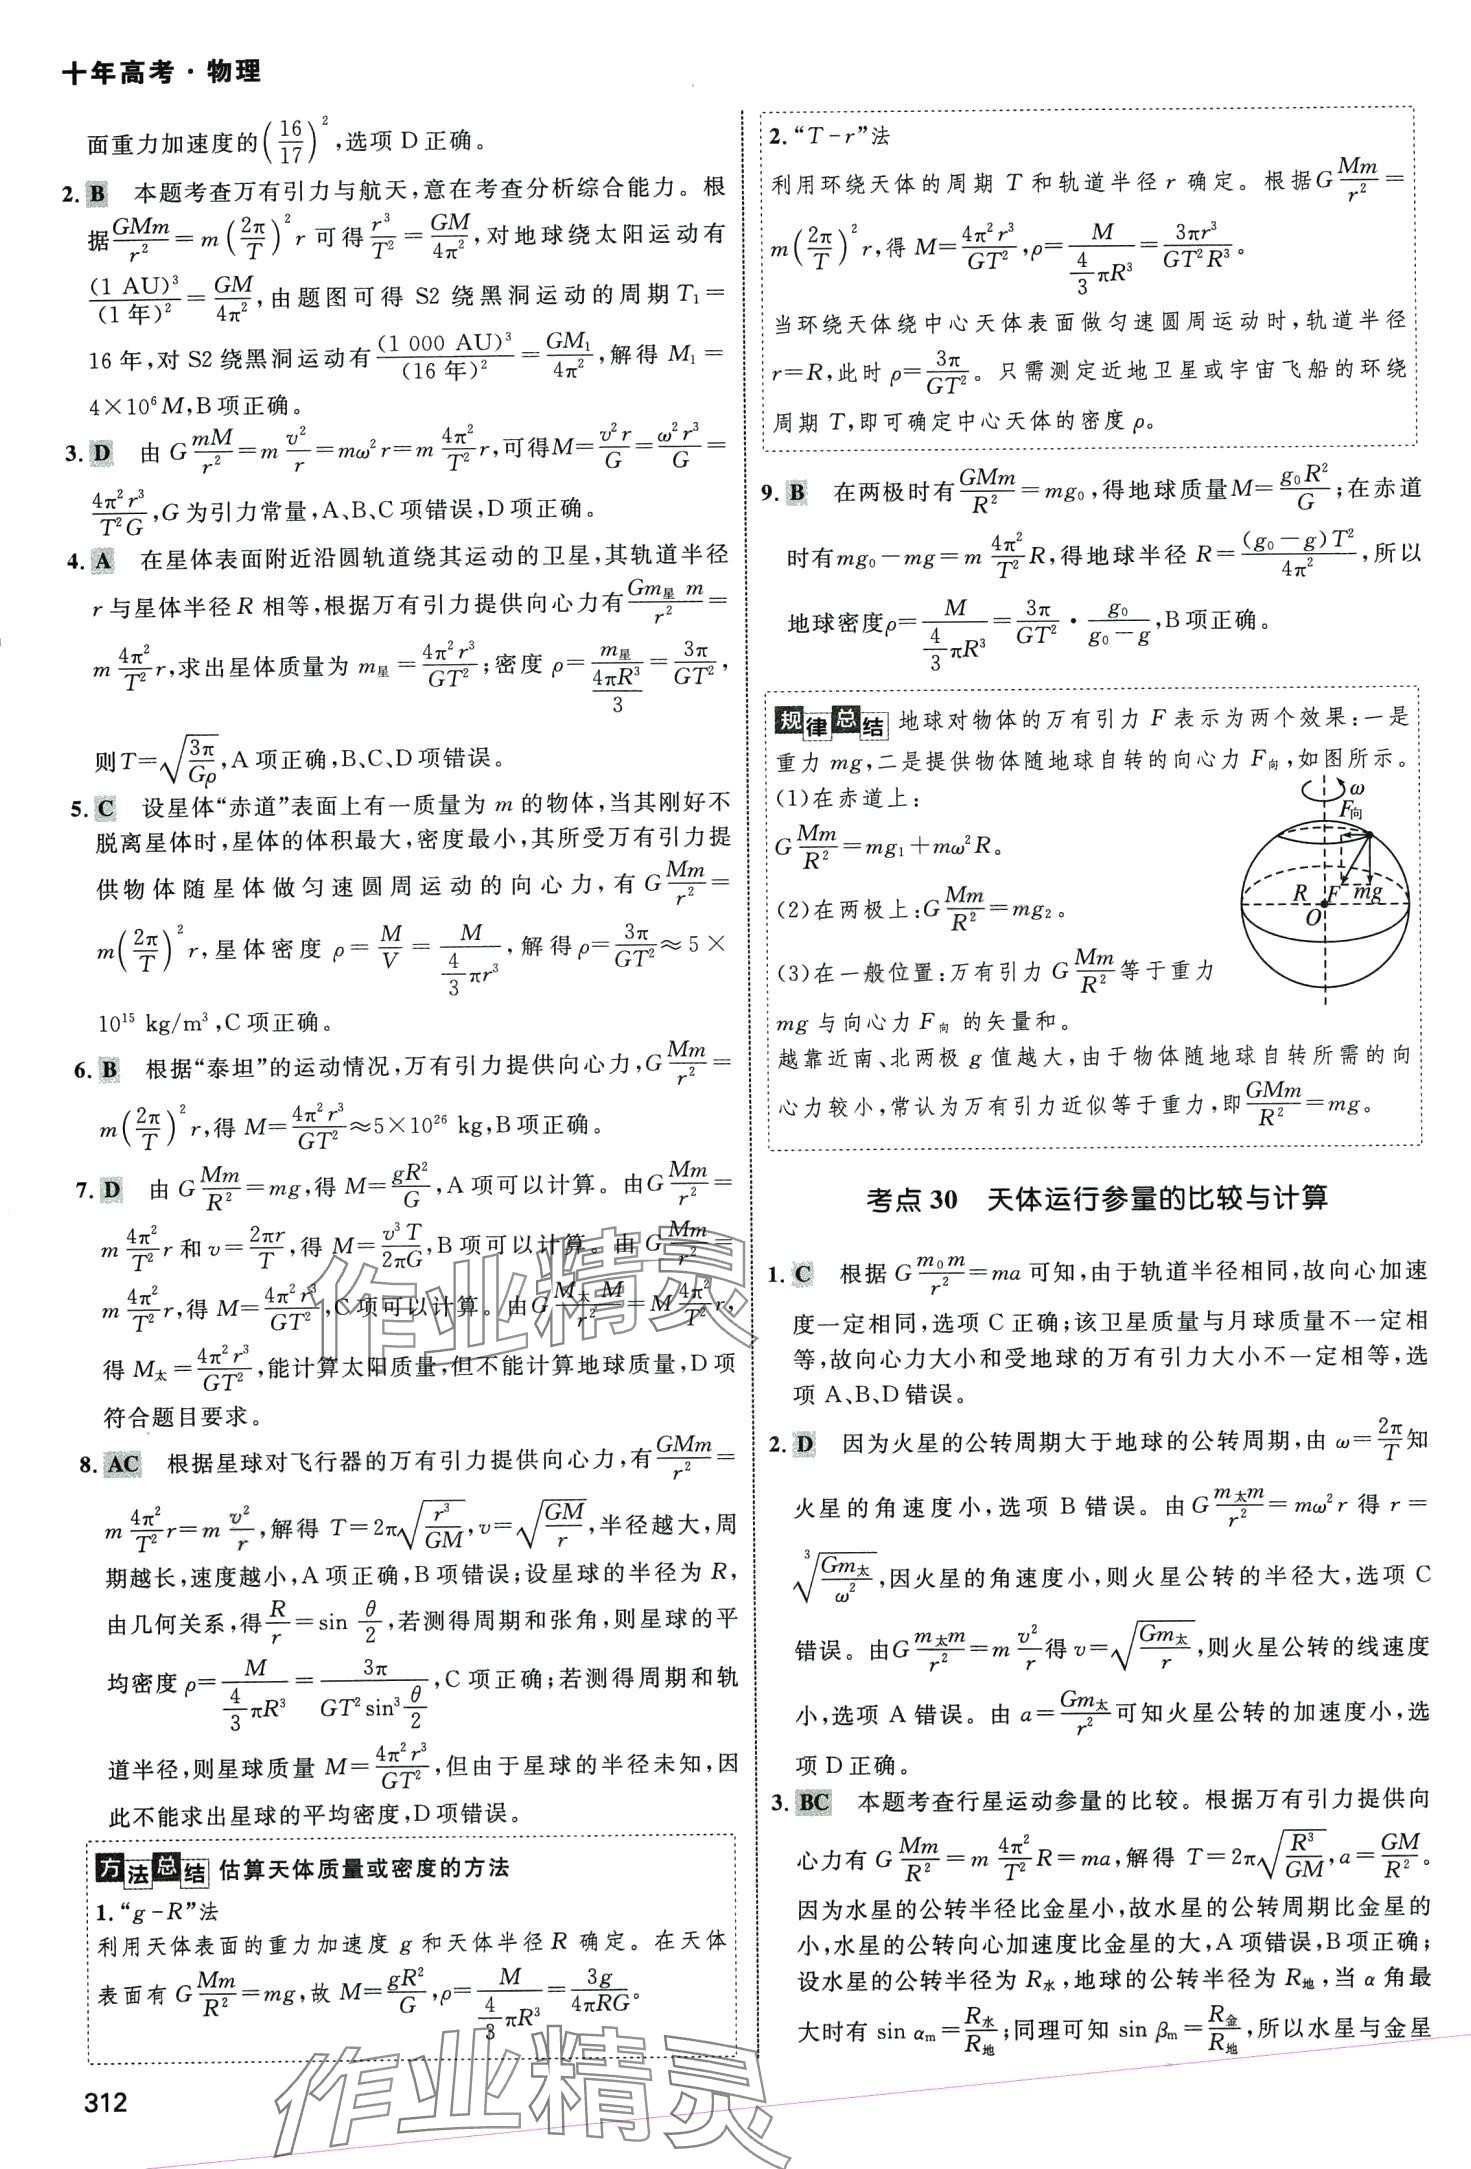 十年高考·物理
面重力加速度的(16/17)²,选项D正确。
2. B 本题考查万有引力与航天,意在考查分析综合能力。根
据GMm/r²=m(2π/T)²r可得r³/T²=GM/4π²,对地球绕太阳运动有
(1 AU)³/(1年)²=GM/4π²,由题图可得S2绕黑洞运动的周期T₁=
16年,对S2绕黑洞运动有(1 000 AU)³/(16年)²=GM₁/4π²,解得M₁=
4×10⁶M,B项正确。
3. D 由G mM/r²=m v²/r=mω²r=m 4π²/T² r,可得M=v²r/G=ω²r³/G=
4π²r³/T²G,G为引力常量,A、B、C项错误,D项正确。
4. A 在星体表面附近沿圆轨道绕其运动的卫星,其轨道半径
r与星体半径R相等,根据万有引力提供向心力有Gm星m/r²=
m 4π²/T² r,求出星体质量为m星=4π²r³/GT²;密度ρ=m星/(4πR³/3)=3π/GT²,
则T=√(3π/Gρ),A项正确,B、C、D项错误。
5. C 设星体“赤道”表面上有一质量为m的物体,当其刚好不
脱离星体时,星体的体积最大,密度最小,其所受万有引力提
供物体随星体做匀速圆周运动的向心力,有G Mm/r²=
m(2π/T)²r,星体密度ρ=M/V=M/(4/3 πr³),解得ρ=3π/GT²≈5×
10¹⁵ kg/m³,C项正确。
6. B 根据“泰坦”的运动情况,万有引力提供向心力,G Mm/r²=
m(2π/T)²r,得M=4π²r³/GT²≈5×10²⁶ kg,B项正确。
7. D 由G Mm/R²=mg,得M=gR²/G,A项可以计算。由G Mm/r²=
m 4π²/T² r和v=2πr/T,得M=v³T/2πG,B项可以计算。由G Mm/r²=
m 4π²/T² r,得M=4π²r³/GT²,C项可以计算。由G M太M/r²=M 4π²/T² r,
得M太=4π²r³/GT²,能计算太阳质量,但不能计算地球质量,D项
符合题目要求。
8. AC 根据星球对飞行器的万有引力提供向心力,有GMm/r²=
m 4π²/T² r=m v²/r,解得T=2π√(r³/GM),v=√(GM/r),半径越大,周
期越长,速度越小,A项正确,B项错误;设星球的半径为R,
由几何关系,得R/r=sin θ/2,若测得周期和张角,则星球的平
均密度ρ=M/(4/3 πR³)=3π/(GT²sin³ θ/2),C项正确;若测得周期和轨
道半径,则星球质量M=4π²r³/GT²,但由于星球的半径未知,因
此不能求出星球的平均密度,D项错误。
方法总结 估算天体质量或密度的方法
1.“g-R”法
利用天体表面的重力加速度g和天体半径R确定。在天体
表面有G Mm/R²=mg,故M=gR²/G,ρ=M/(4/3 πR³)=3g/4πRG。
312
2.“T-r”法
利用环绕天体的周期T和轨道半径r确定。根据G Mm/r²=
m(2π/T)²r,得M=4π²r³/GT²,ρ=M/(4/3 πR³)=3πr³/GT²R³。
当环绕天体绕中心天体表面做匀速圆周运动时,轨道半径
r=R,此时ρ=3π/GT²。只需测定近地卫星或宇宙飞船的环绕
周期T,即可确定中心天体的密度ρ。
9. B 在两极时有GMm/R²=mg₀,得地球质量M=g₀R²/G;在赤道
时有mg₀-mg=m 4π²/T² R,得地球半径R=(g₀-g)T²/4π²,所以
地球密度ρ=M/(4/3 πR³)=3π/GT²·g₀/(g₀-g),B项正确。
规律总结 地球对物体的万有引力F表示为两个效果:一是
重力mg,二是提供物体随地球自转的向心力F向,如图所示。
(1)在赤道上:
G Mm/R²=mg₁+mω²R。
(2)在两极上:G Mm/R²=mg₂。
(3)在一般位置:万有引力G Mm/R²等于重力
mg与向心力F向的矢量和。
ω
F向
R F mg
O
越靠近南、北两极g值越大,由于物体随地球自转所需的向
心力较小,常认为万有引力近似等于重力,即GMm/R²=mg。
考点30 天体运行参量的比较与计算
1. C 根据G m₀m/r²=ma可知,由于轨道半径相同,故向心加速
度一定相同,选项C正确;该卫星质量与月球质量不一定相
等,故向心力大小和受地球的万有引力大小不一定相等,选
项A、B、D错误。
2. D 因为火星的公转周期大于地球的公转周期,由ω=2π/T知
火星的角速度小,选项B错误。由G m太m/r²=mω²r得r=
³√(Gm太/ω²),因火星的角速度小,则火星公转的半径大,选项C
错误。由G m太m/r²=m v²/r得v=√(Gm太/r),则火星公转的线速度
小,选项A错误。由a=Gm太/r²可知火星公转的加速度小,选
项D正确。
3. BC 本题考查行星运动参量的比较。根据万有引力提供向
心力有G Mm/R²=m 4π²/T² R=ma,解得T=2π√(R³/GM),a=GM/R²。
因为水星的公转半径比金星小,故水星的公转周期比金星的
小,水星的公转向心加速度比金星的大,A项错误,B项正确;
设水星的公转半径为R水,地球的公转半径为R地,当α角最
大时有sin αₘ=R水/R地;同理可知sin βₘ=R金/R地,所以水星与金星
作业精灵
作业精灵